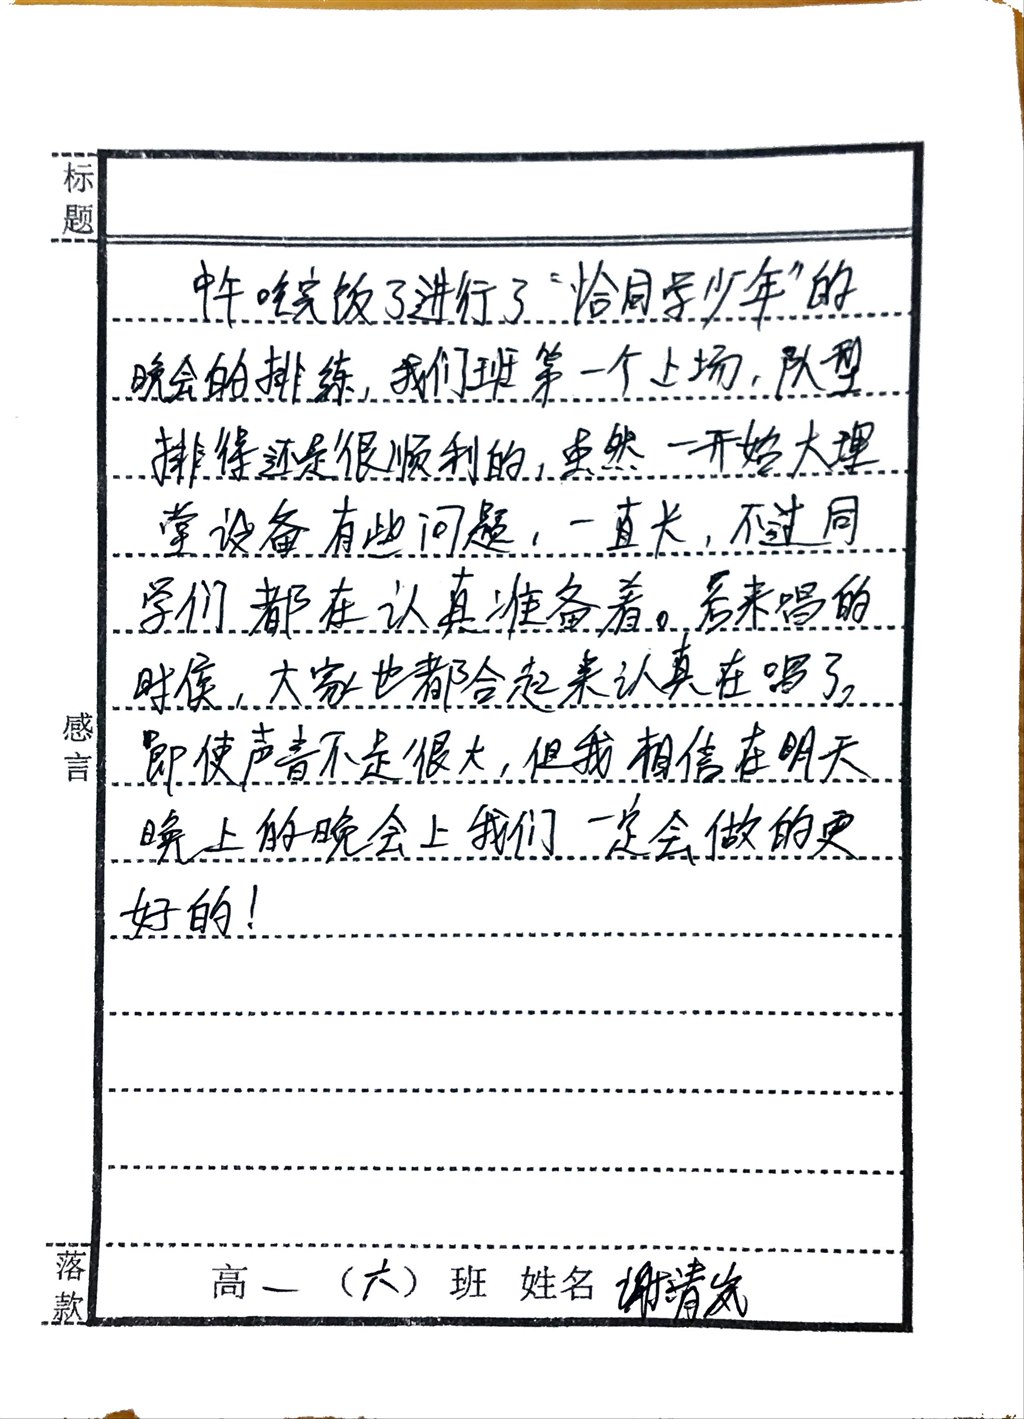 标题
中午吃完饭了进行了“恰同学少年”的
晚会的排练，我们班第一个上场，队型
排得还是很顺利的，虽然一开始大理
堂设备有些问题，一直长，不过同
学们都在认真准备着。后来唱的
时候，大家也都合起来认真在唱了，
感言
即使声音不是很大，但我相信在明天
晚上的晚会上我们一定会做的更
好的！
落款
高一（六）班 姓名 谢清岚